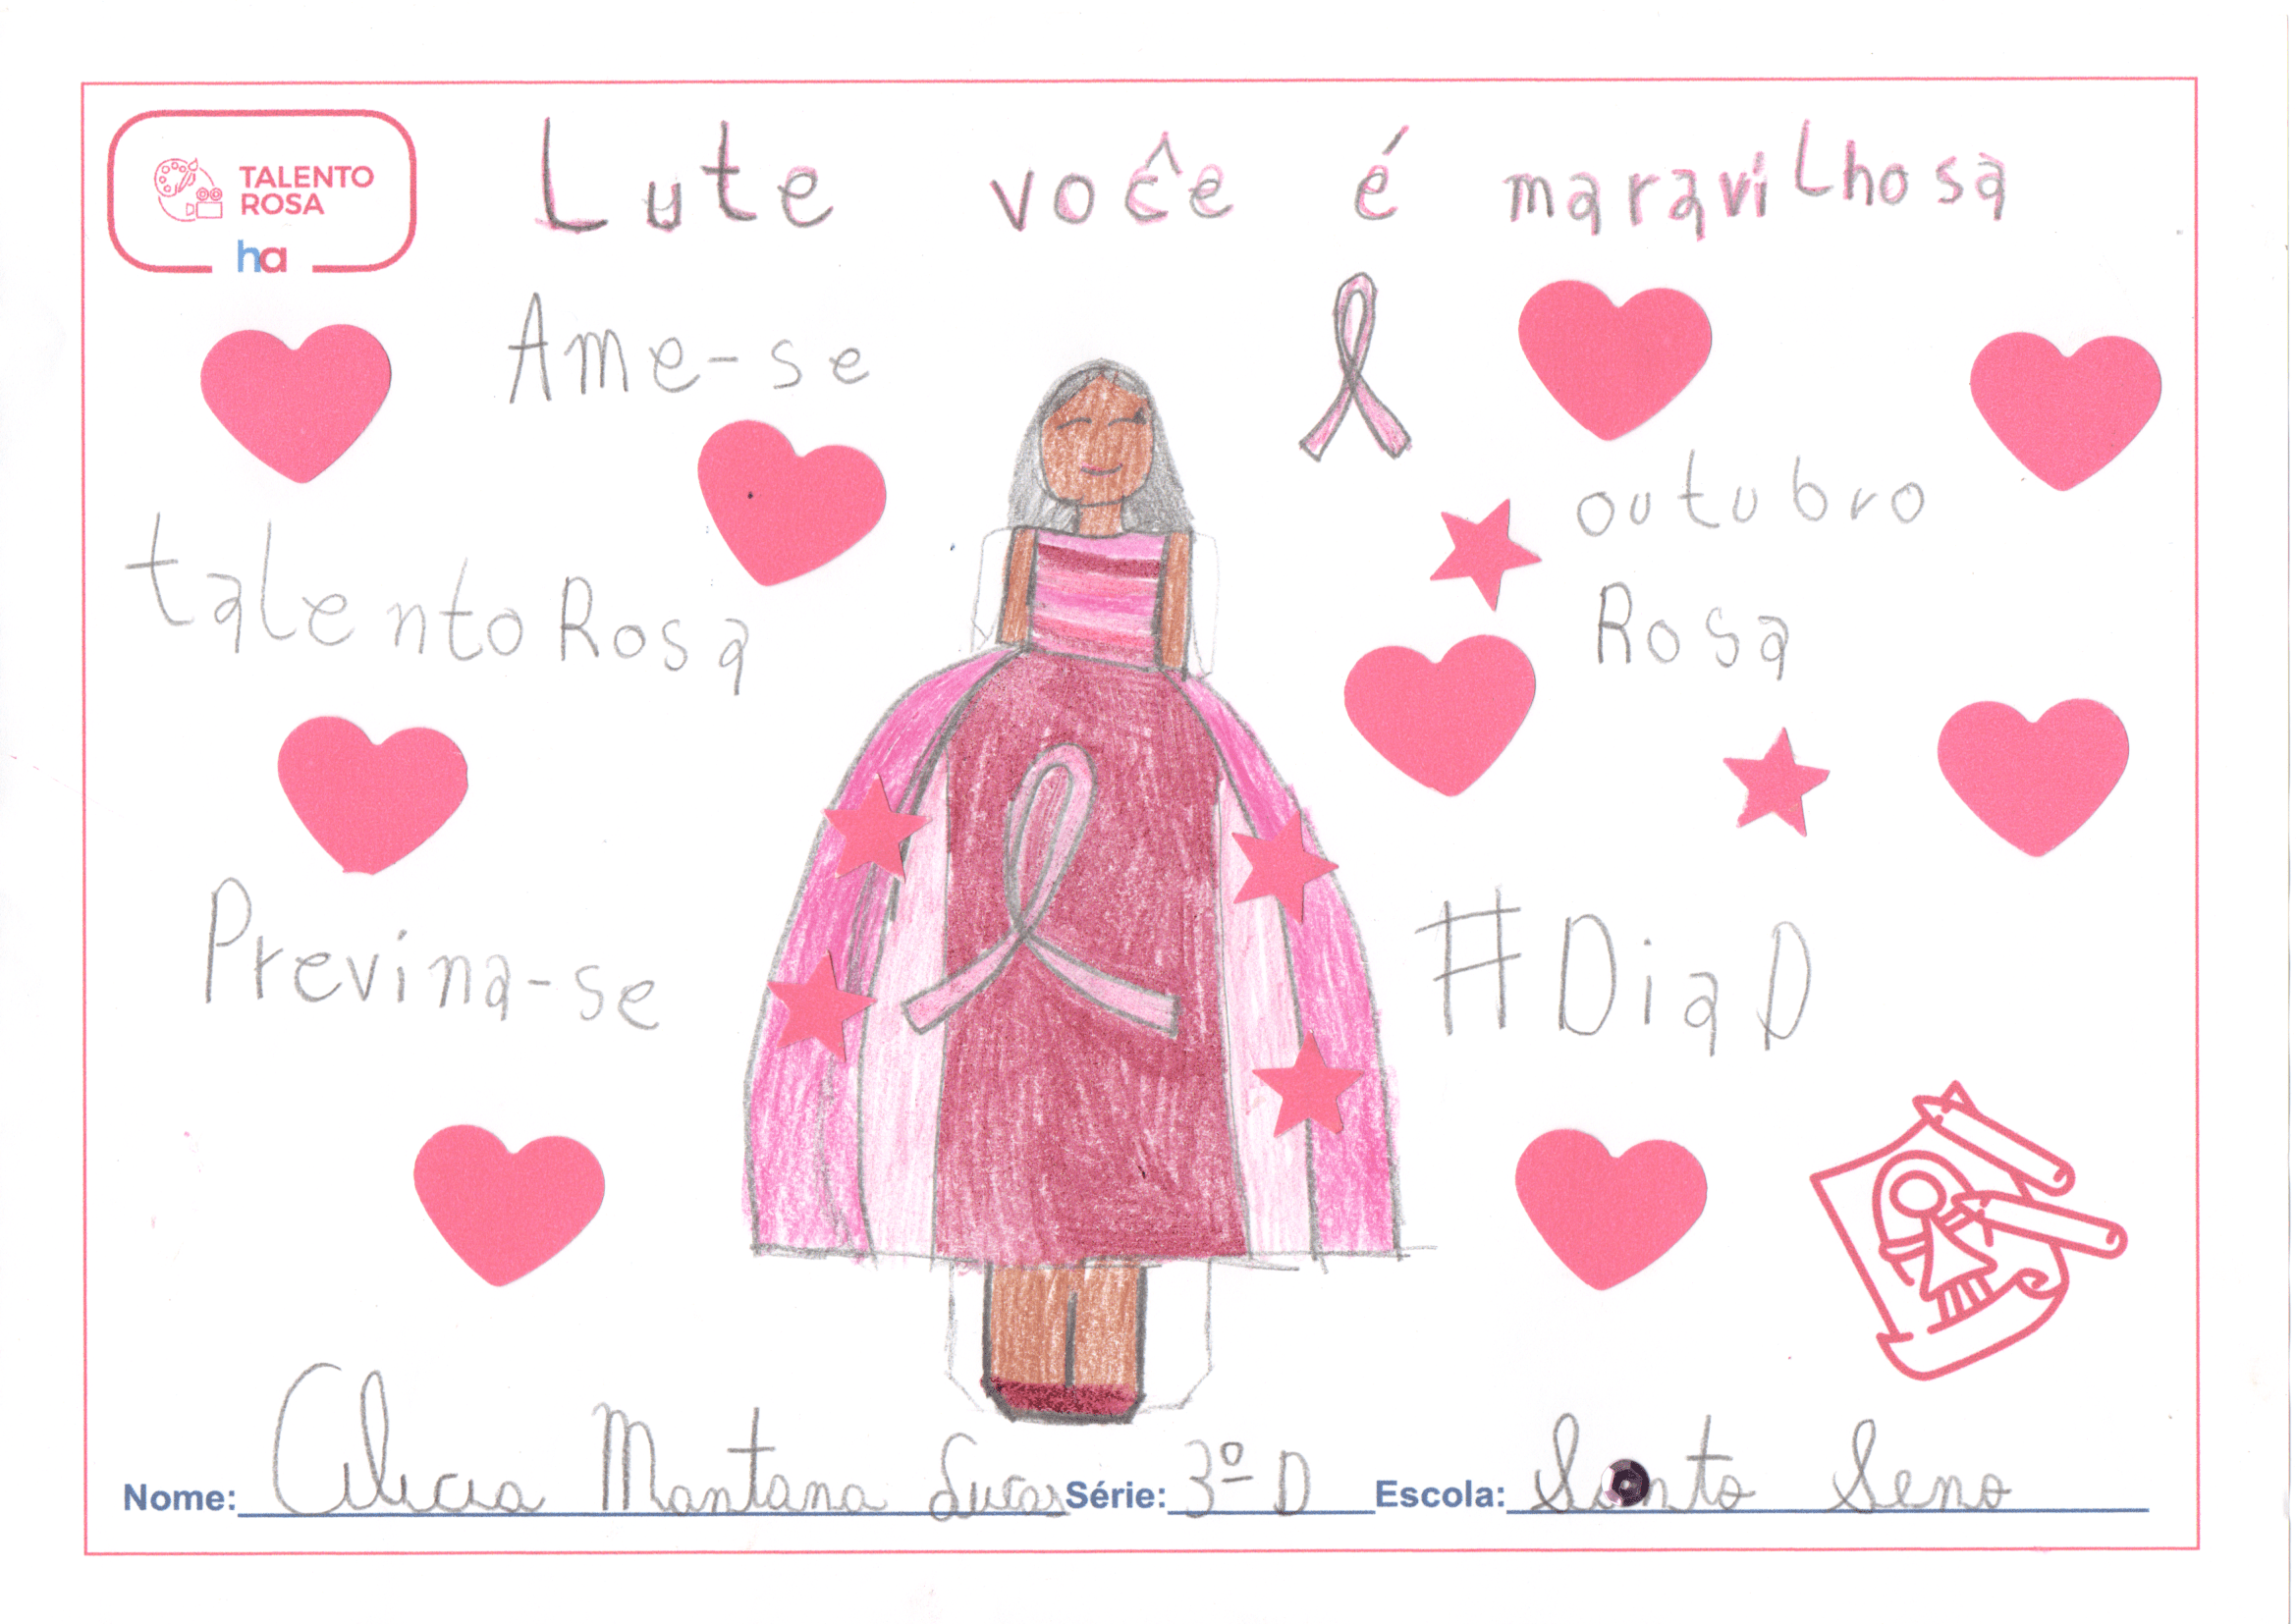 TALENTO
ROSA
ha
Lute você é maravilhosa
Ame-se
outubro
Rosa
talento Rosa
Previna-se
#DiaD
Nome: Alicia Mantana Lucas Série: 3º D Escola: Santo Seno